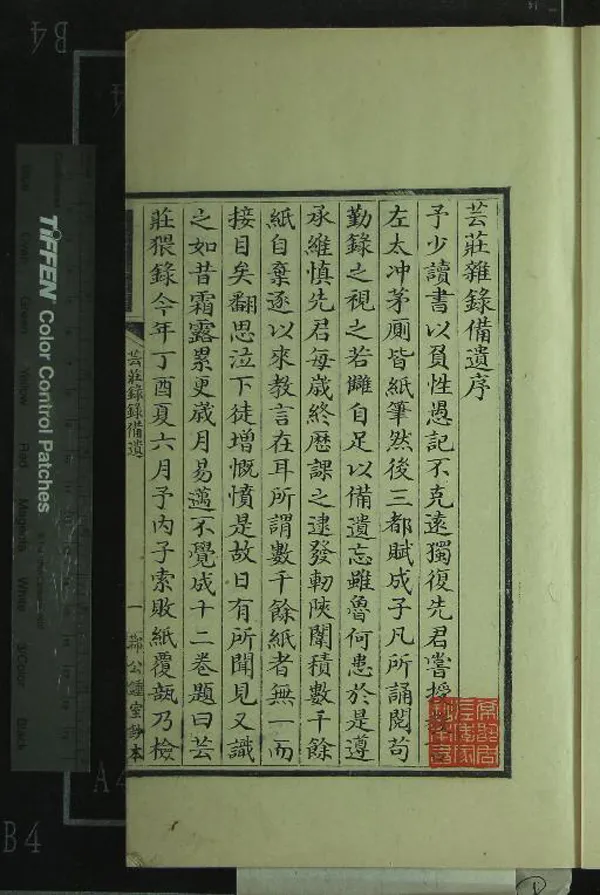 芸莊雜錄備遺序
予少讀書以負性愚記不克遠獨復先君嘗授
左太冲茅厠皆紙筆然後三都賦成子凡所誦閱苟
勤錄之視之若贅自足以備遺忘雖魯何患於是遵
承維慎先君每歲終歷課之逮發軔陝闈積數千餘
紙自棄逐以來教言在耳所謂數千餘紙者無一而
接目矣翻思泣下徒增慨憤是故日有所聞見又識
之如昔霜露累更歲月易邁不覺成十二卷題曰芸
莊猥錄今年丁酉夏六月予內子索敗紙覆瓿乃檢
芸莊錄錄備遺
一
鄰公鍾室鈔本
TIFFEN Color Control Patches
Cyan
Green
Yellow
Red
Magenta
White
3/Color
Black
B4
A4
B4